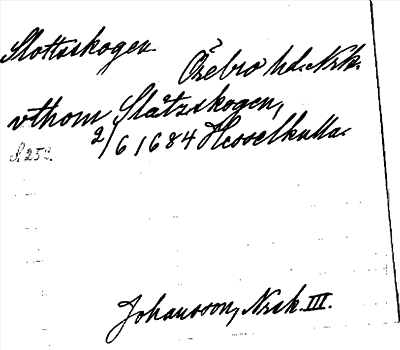 Slottsskogen
Örebro hd. Nrk.
vthom Slåtzskogen,
S. 252. 2/6 1684 Hesselkulla.
Johansson, Nrk. III.